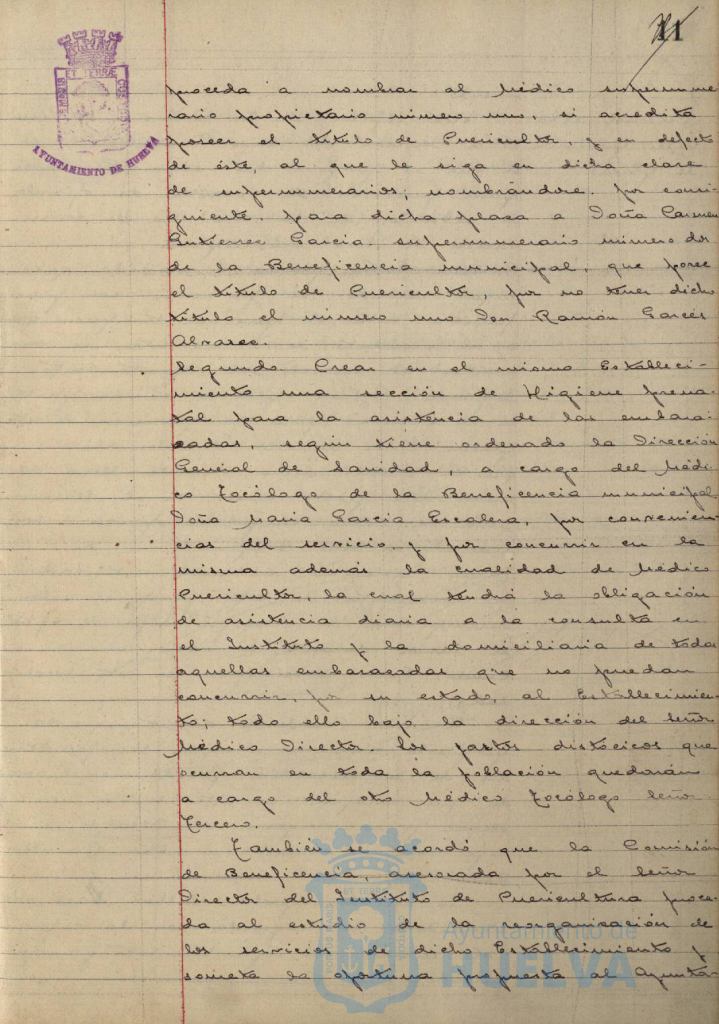 11
AYUNTAMIENTO DE HUELVA
proceda a nombrar al Médico supernume
rario propietario número uno, si acredita
poseer el título de Puericultor, y en defecto
de éste, al que le siga en dicha clase
de supernumerarios; nombrándose, por consi-
guiente, para dicha plaza a Doña Carmen
Gutierrez Garcia, supernumerario número dos
de la Beneficencia municipal, que posee
el título de Puericultor, por no tener dicho
título el número uno Don Ramón Garcés
Alvarez.
Segundo. Crear en el mismo Estableci-
miento una sección de Higiene prena-
tal para la asistencia de las embara-
zadas, según tiene ordenado la Dirección
General de Sanidad, a cargo del Médi-
co Tocólogo de la Beneficencia municipal,
Doña Maria Garcia Escalera, por convenien-
cias del servicio, y por concurrir en la
misma además la cualidad de Médico
Puericultor, la cual tendrá la obligación
de asistencia diaria a la consulta en
el Instituto y la domiciliaria de todas
aquellas embarazadas que no puedan
concurrir, por su estado, al Establecimien-
to; todo ello bajo la dirección del Señor
Médico Director. Los partos distócicos que
ocurran en toda la población quedarán
a cargo del otro Médico Tocólogo Señor
Tercero.
También se acordó que la Comisión
de Beneficencia, asesorada por el Señor
Director del Instituto de Puericultura proce-
da al estudio de la reorganización de
los servicios de dicho Establecimiento y
someta la oportuna propuesta al Ayunta-
Ayuntamiento de
HUELVA